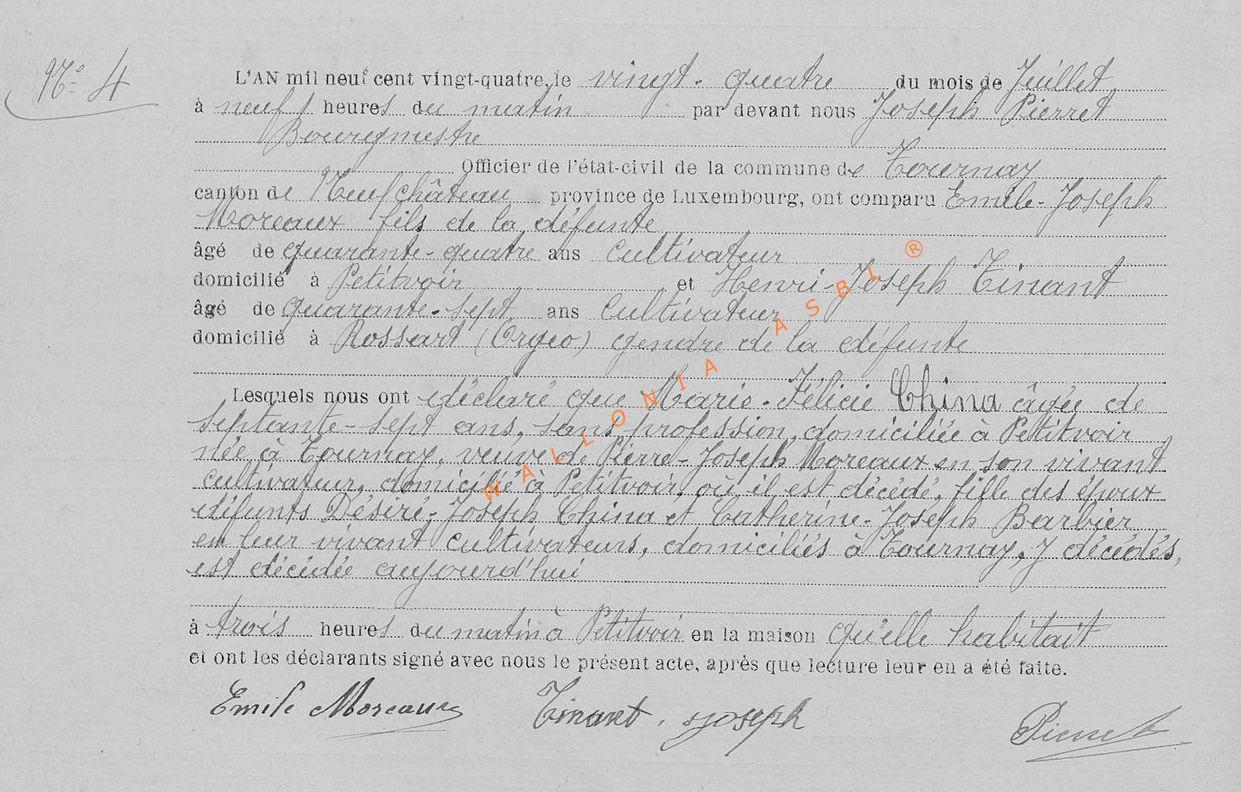 N° 4
L'AN mil neuf cent vingt-quatre, le vingt-quatre du mois de Juillet
à neuf heures du matin par devant nous Joseph Pierret
Bourgmestre
Officier de l'état-civil de la commune de Tournay
canton de Neufchâteau province de Luxembourg, ont comparu Emile-Joseph
Moreaux fils de la défunte
âgé de quarante-quatre ans cultivateur
domicilié à Petitvoir et Henri-Joseph Tinant
âgé de quarante-sept ans cultivateur
domicilié à Rossart (Orgeo) gendre de la défunte
Lesquels nous ont déclaré que Marie-Félicie China âgée de
septante-sept ans, sans profession, domiciliée à Petitvoir
née à Tournay, veuve de Pierre-Joseph Moreaux en son vivant
cultivateur, domicilié à Petitvoir, où il est décédé, fille des époux
défunts Désiré-Joseph China et Catherine-Joseph Barbier
en leur vivant cultivateurs, domiciliés à Tournay, y décédés,
est décédée aujourd'hui
à trois heures du matin à Petitvoir en la maison qu'elle habitait
et ont les déclarants signé avec nous le présent acte, après que lecture leur en a été faite.
Emile Moreaux Tinant. Joseph Pierret
WALLONIA ASBL ®